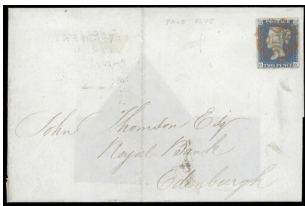 TWO PENCE
John Thomson Esq
Royal Bank
Edinburgh